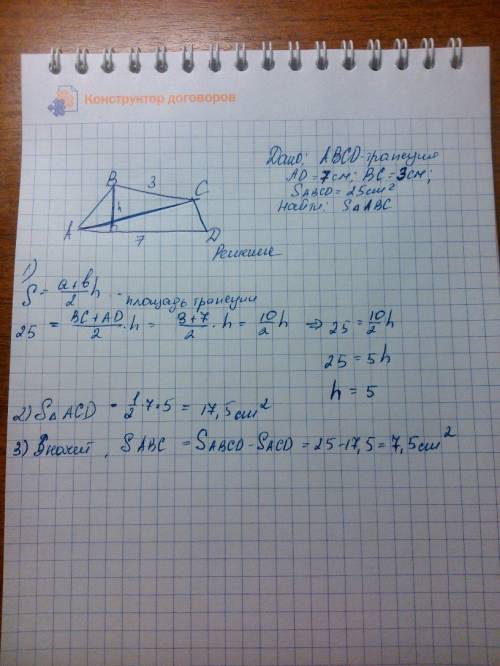 Конструктор договоров
Дано: ABCD-трапеция
AD = 7 см; BC = 3 см;
SABCD = 25 см²
Найти: S△ABC
B 3 C
h
A 7 D
Решение
1)
S = a+b/2 h - площадь трапеции
25 = BC+AD/2 · h = 3+7/2 · h = 10/2 h ⇒ 25 = 10/2 h
25 = 5h
h = 5
2) S△ACD = 1/2 · 7 · 5 = 17,5 см²
3) Значит, SABC = SABCD - SACD = 25-17,5 = 7,5 см²